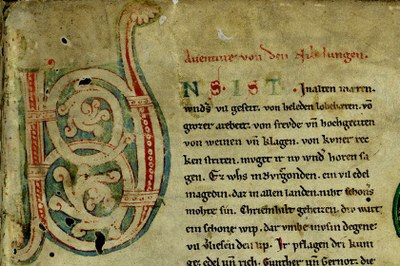 Auenture von den Nibelungen.
VNS IST. Inalten mæren.
wnds vil geseit. von heleden lobebæren. vō
grozer arebeit. von frevde vn̄ hochgeciten
von weinen vn̄ klagen. von kvner rec
ken striten. mvget ir nv wnd horen sa
gen. Ez whs in Bvrgonden. ein vil edel
magedin. daz in allen landen. niht schons
mohte sin. Chriemhilt geheizen. div wart
ein schone wip. dar vmbe mvsin degene
vil vliesen den lip. Ir pflagen dri kuni
ge. edel vn̄ rich. Gunther vn̄ Gernot. die